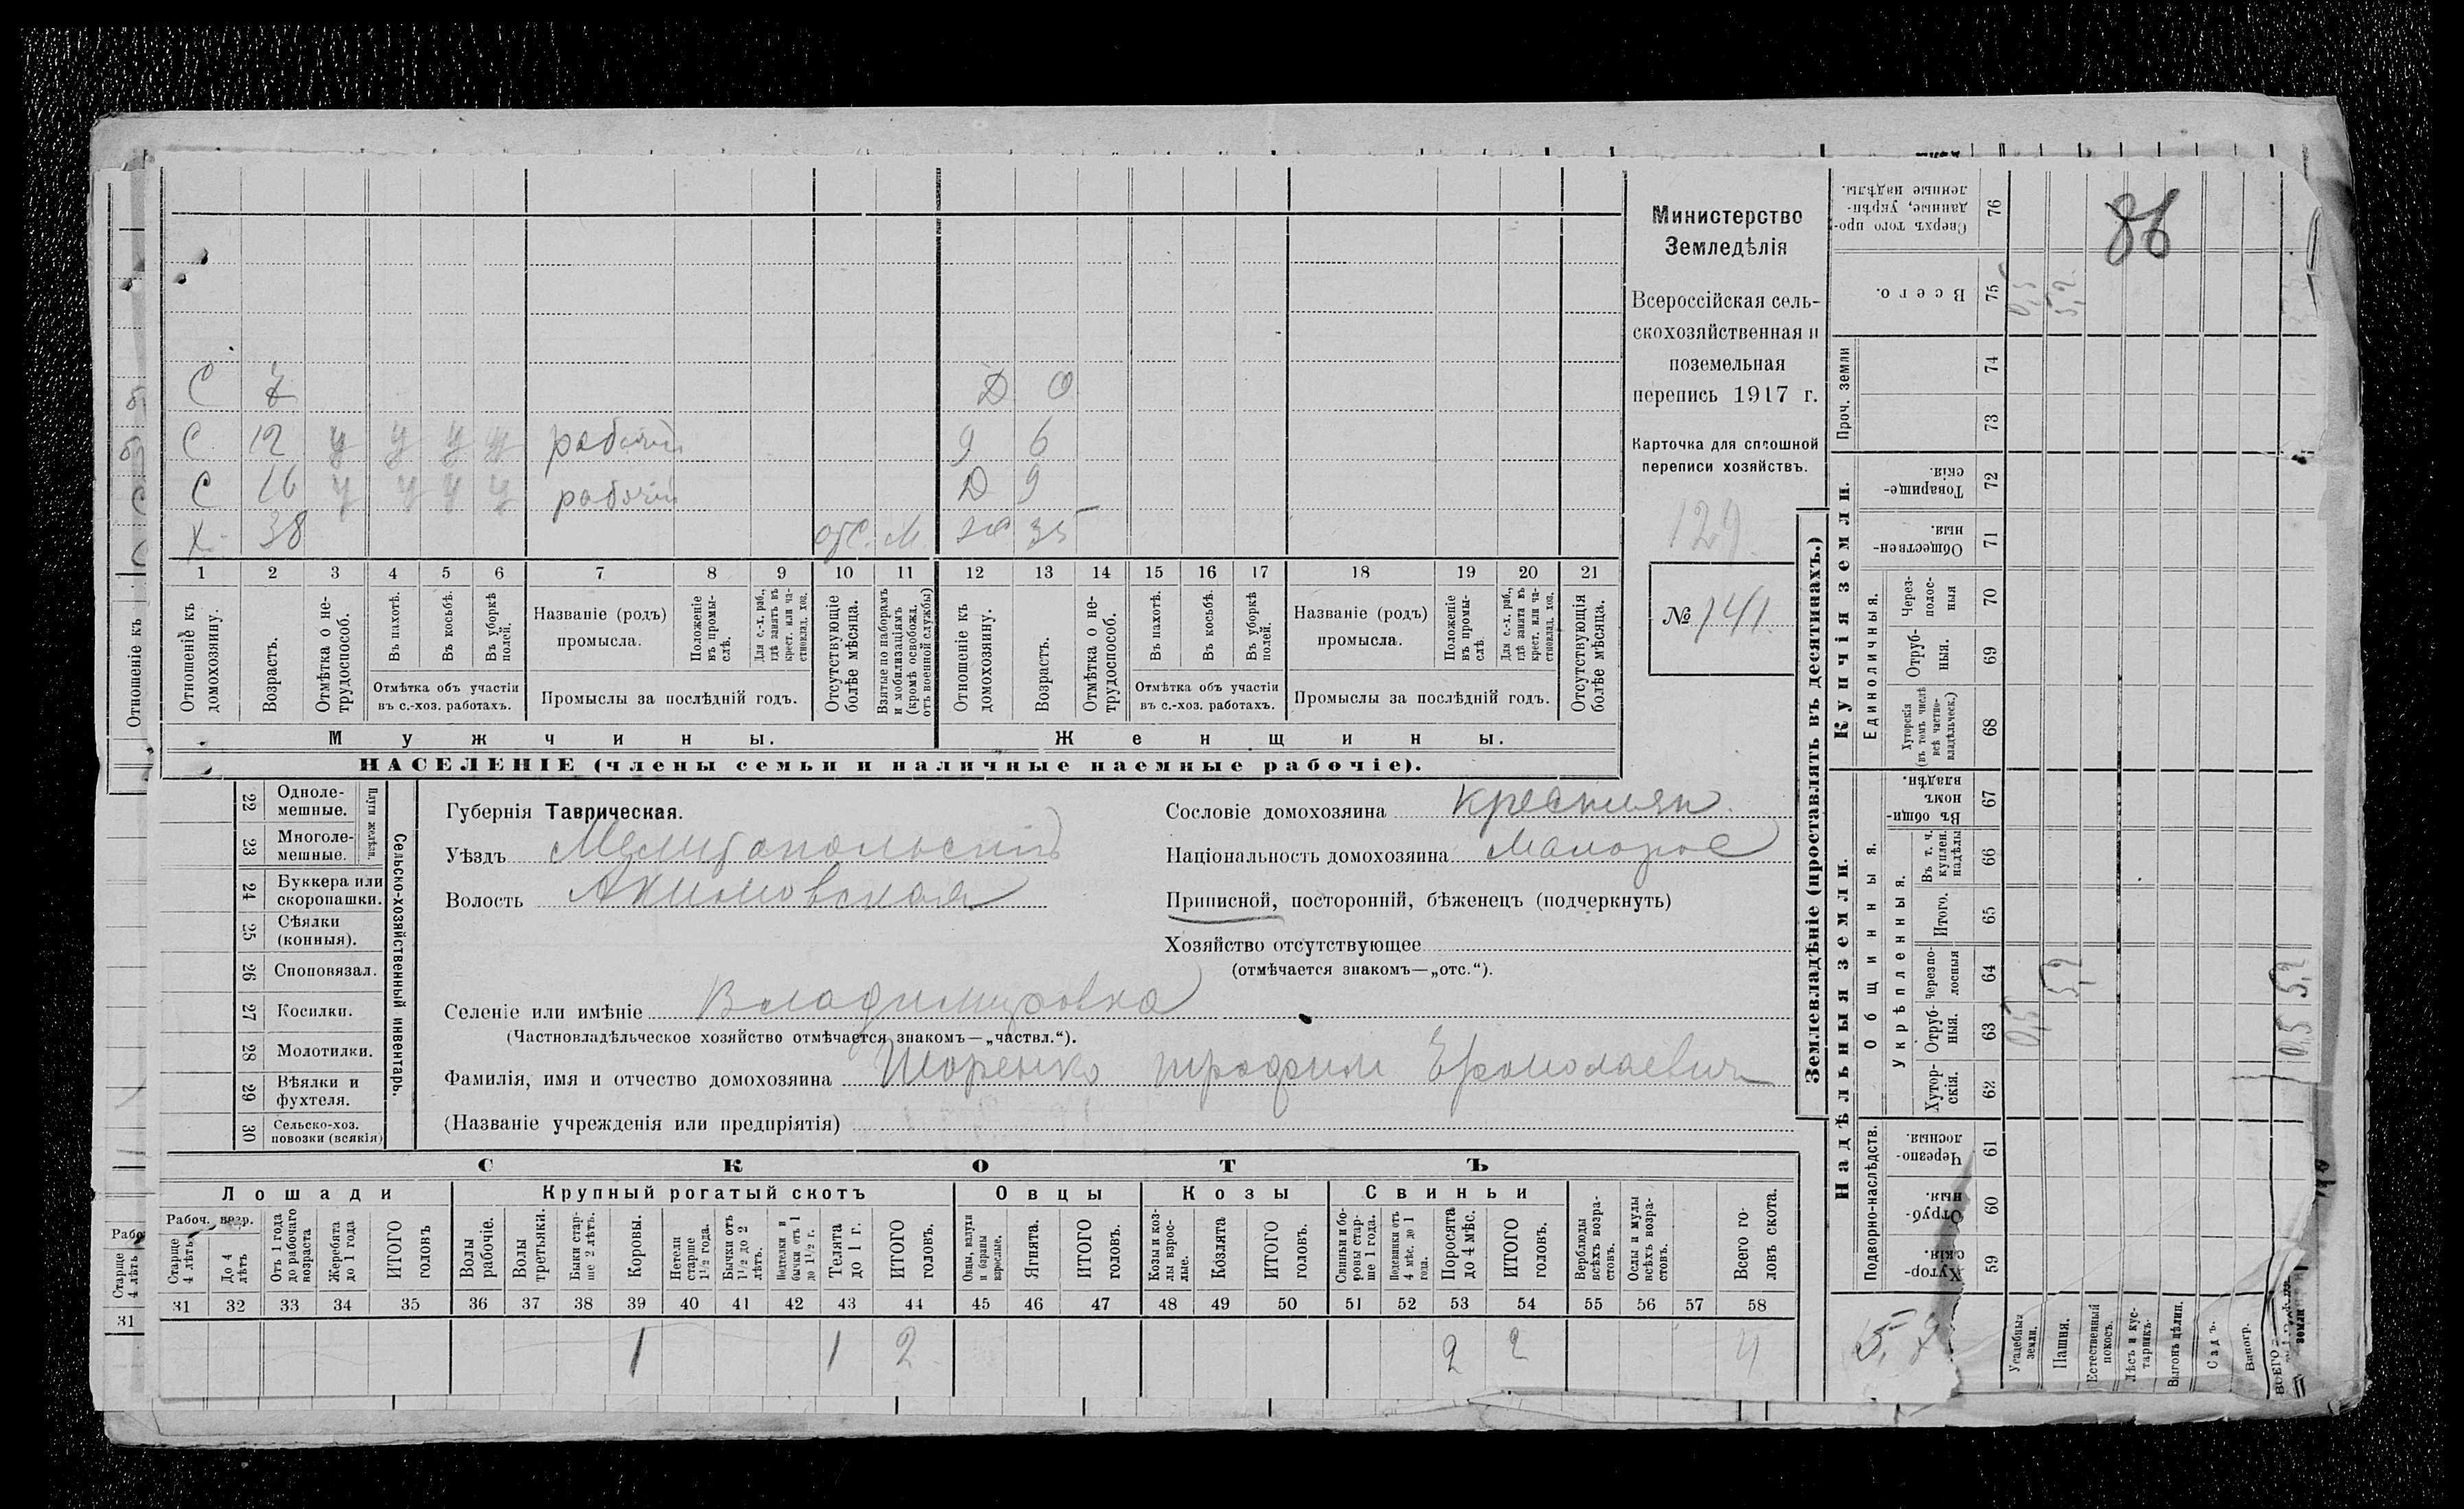 С 7 Д 0
С 12 у у у у рабочій Д 6
С 16 у у у у рабочій Д 9
Х 38 отс. М. ж 35
1 2 3 4 5 6 7 8 9 10 11 12 13 14 15 16 17 18 19 20 21
Отношеніе къ домохозяину.
Возрастъ.
Отмѣтка о нетрудоспособ.
Въ пахотѣ.
Въ косьбѣ.
Въ уборкѣ полей.
Отмѣтка объ участіи
въ с.-хоз. работахъ.
Названіе (родъ)
промысла.
Положеніе въ промыслѣ.
Для с.-х. раб., гдѣ занятъ въ крест. или частновлад. хоз.
Промыслы за послѣдній годъ.
Отсутствующіе болѣе мѣсяца.
Взятые по наборамъ и мобилизаціямъ (кромѣ освобожд. отъ военной службы)
Отношеніе къ домохозяину.
Возрастъ.
Отмѣтка о нетрудоспособ.
Въ пахотѣ.
Въ косьбѣ.
Въ уборкѣ полей.
Отмѣтка объ участіи
въ с.-хоз. работахъ.
Названіе (родъ)
промысла.
Положеніе въ промыслѣ.
Для с.-х. раб., гдѣ занята въ крест. или частновлад. хоз.
Промыслы за послѣдній годъ.
Отсутствующія болѣе мѣсяца.
Мужчины.
Женщины.
НАСЕЛЕНІЕ (члены семьи и наличные наемные рабочіе).
Министерство
Земледѣлія
Всероссійская сель-
скохозяйственная и
поземельная
перепись 1917 г.
Карточка для сплошной
переписи хозяйствъ.
129.
№ 141.
Сельско-хозяйственный инвентарь.
Плуги желѣзн.
22 Одноле-
мешные.
23 Многоле-
мешные.
24 Буккера или
скоропашки.
25 Сѣялки
(конныя).
26 Споповязал.
27 Косилки.
28 Молотилки.
29 Вѣялки и
фухтеля.
30 Сельско-хоз.
повозки (всякія)
Губернія Таврическая.
Уѣздъ Мелитопольскій
Волость Акимовская
Сословіе домохозяина крестьян.
Національность домохозяина Малорос
Приписной, посторонній, бѣженецъ (подчеркнуть)
Хозяйство отсутствующее
(отмѣчается знакомъ—„отс.“).
Селеніе или имѣніе Владимировка
(Частновладѣльческое хозяйство отмѣчается знакомъ—„частвл.“).
Фамилія, имя и отчество домохозяина Шоренко Трофим Ермолаевич
(Названіе учрежденія или предпріятія)
СКОТЪ
Лошади Крупный рогатый скотъ Овцы Козы Свиньи
Рабоч. возр.
Старше 4 лѣтъ
До 4 лѣтъ
Отъ 1 года до рабочаго возраста
Жеребята до 1 года
ИТОГО головъ
Волы рабочіе.
Волы третьяки.
Быки старше 2 лѣтъ.
Коровы.
Нетели старше 1½ года.
Бычки отъ 1½ до 2 лѣтъ.
Подтелки и бычки отъ 1 до 1½ г.
Телята до 1 г.
ИТОГО головъ.
Овцы, валухи и бараны взрослые.
Ягнята.
ИТОГО головъ.
Козы и козлы взрослые.
Козлята
ИТОГО головъ.
Свиньи и боровы старше 1 года.
Подсвинки отъ 4 мѣс. до 1 года.
Поросята до 4 мѣс.
ИТОГО головъ.
Верблюды всѣхъ возрастовъ.
Ослы и мулы всѣхъ возрастовъ.
Всего головъ скота.
31 32 33 34 35 36 37 38 39 40 41 42 43 44 45 46 47 48 49 50 51 52 53 54 55 56 57 58
1 1 2 2 2 4
Землевладѣніе (проставлять въ десятинахъ.)
Надѣльныя земли.
Купчія земли.
Проч. земли
Подворно-наслѣдств.
Общинныя.
Укрѣпленныя.
Единоличныя.
Сверхъ того проданные, укрѣпленные надѣлы. 76
Всего. 75 0,5 5,2
74
73
Товарищескія. 72
Общественныя. 71
Через-полос-ныя 70
Отруб-ныя. 69
Хуторскія (въ томъ числѣ всѣ частновладѣльческ.) 68
Въ общинномъ владѣн. 67
Въ т. ч. куплен. надѣлы 66
Итого. 65
Черезпо-лосныя 64 5,2
Отруб-ныя. 63 0,5
Хутор-скія. 62
Черезпо-лосныя. 61
Отруб-ныя. 60
Хутор-скія. 59
Усадебныя земли.
Пашня.
Естественный покосъ.
Лѣсъ и кустарникъ.
Выгонъ цѣлин.
Садъ.
Виногр.
ВСЕГО
земли
86
5,7
0,5 5,2
Отношеніе къ
Рабо
Старше 4 лѣтъ
31